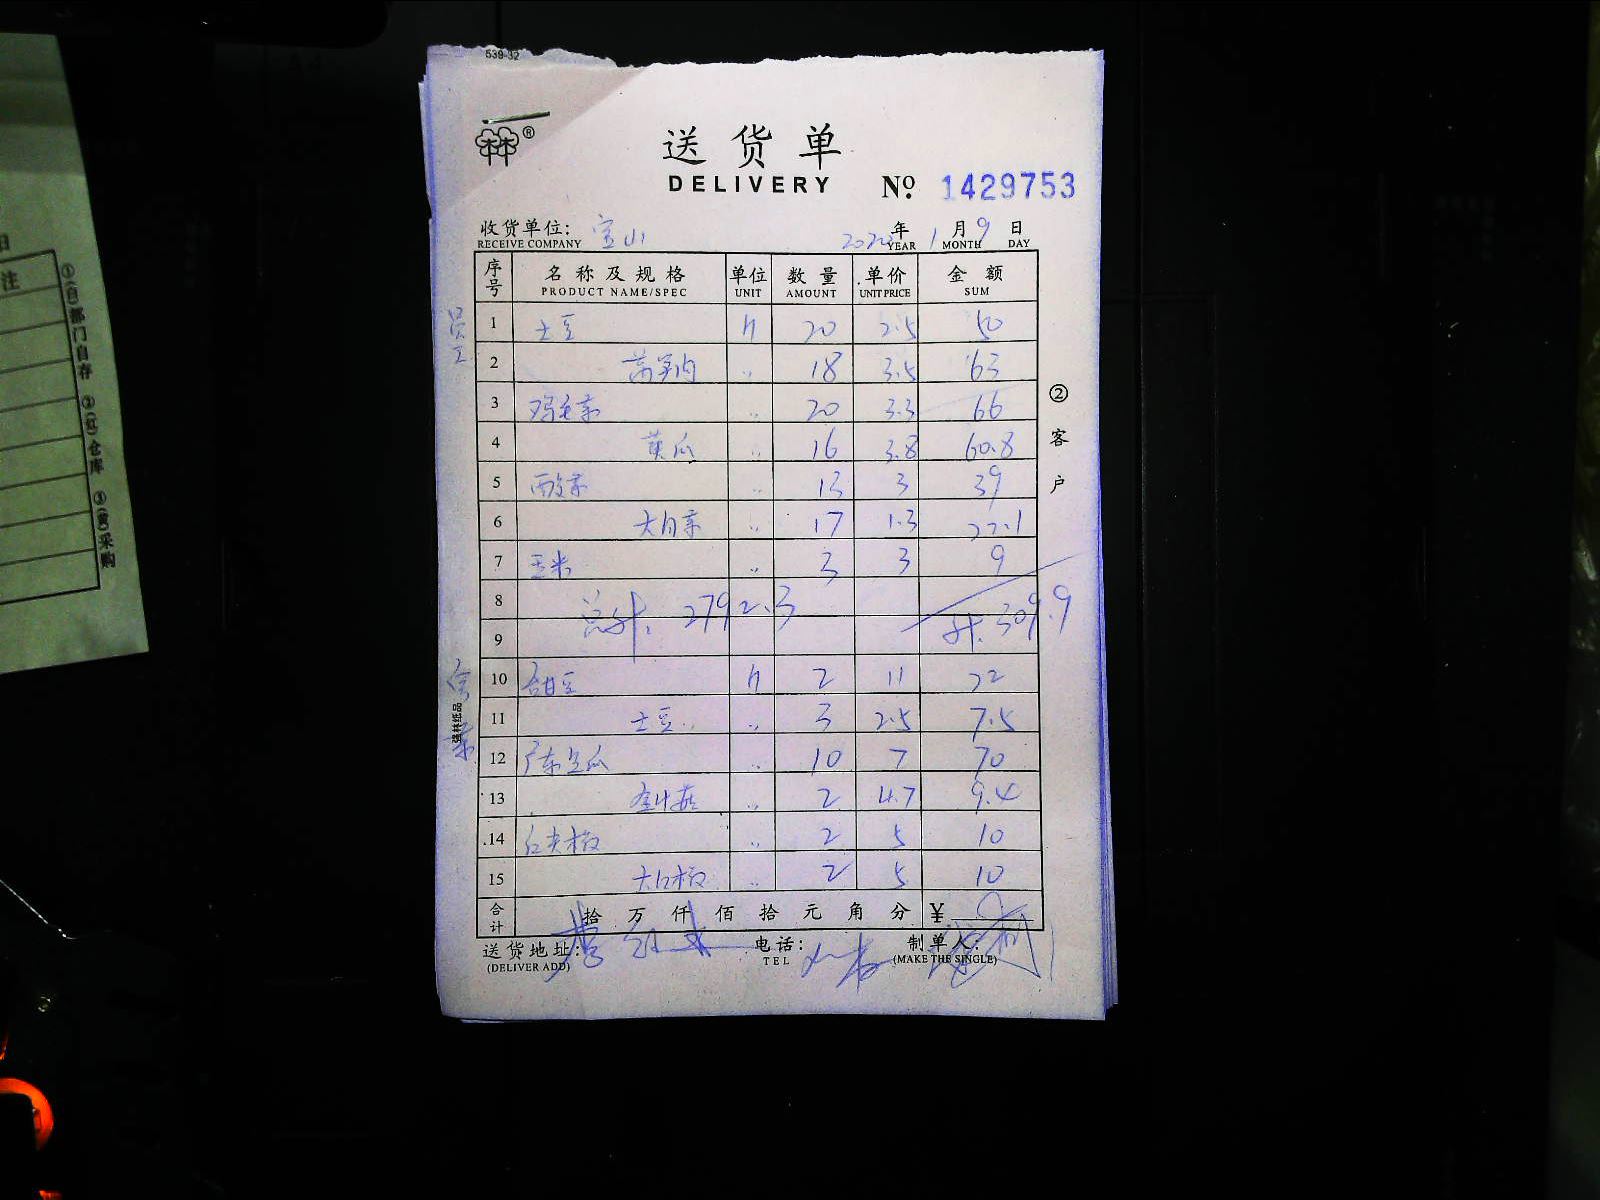 539-32
送货单
DELIVERY
№ 1429753
收货单位: 宝山
RECEIVE COMPANY
2022年1月9日
YEAR MONTH DAY
序号 名称及规格 单位 数量 单价 金额
PRODUCT NAME/SPEC UNIT AMOUNT UNIT PRICE SUM
员工
1 土豆 斤 20 2.5 50
2 莴笋肉 〃 18 3.5 63
3 鸡毛菜 〃 20 3.3 66
4 黄瓜 〃 16 3.8 60.8
5 酸菜 〃 13 3 39
6 大白菜 〃 17 1.3 22.1
7 玉米 〃 3 3 9
8 总计: 2792.3
9 计: 309.9
10 甜豆 斤 2 11 22
11 土豆 〃 3 2.5 7.5
12 广东丝瓜 〃 10 7 70
13 〃 2 4.7 9.4
14 红尖椒 〃 2 5 10
15 大红椒 〃 2 5 10
合计 拾万仟佰拾元角分 ¥
送货地址: 电话: 制单人:
(DELIVER ADD) TEL (MAKE THE SINGLE)
②客户
强林纸品
日
注
①(白)部门自存 ②(红)仓库 ③(黄)采购